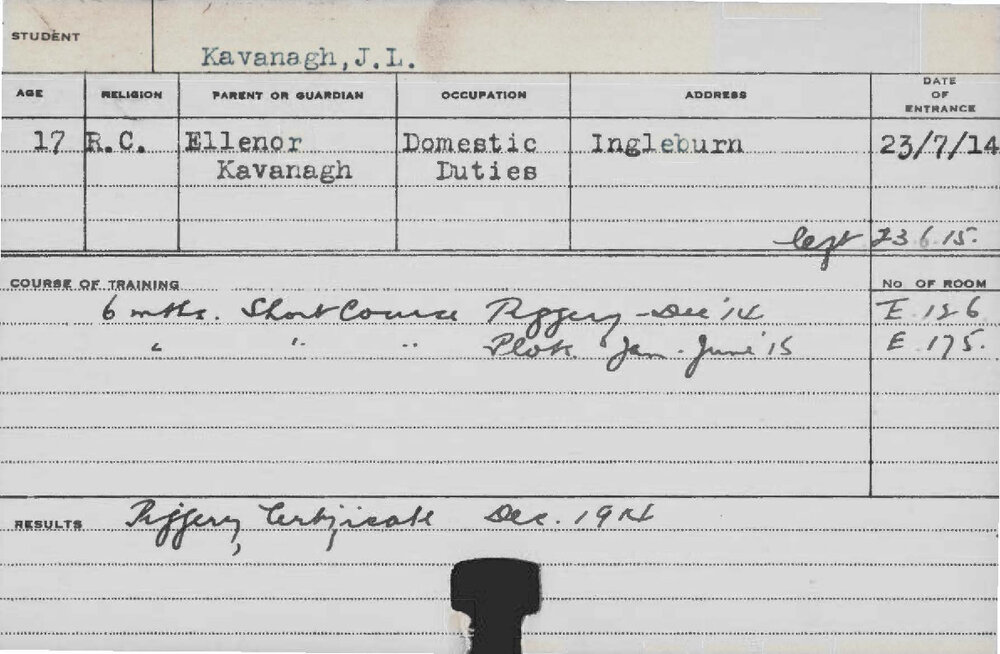 STUDENT
Kavanagh, J.L.
AGE RELIGION PARENT OR GUARDIAN OCCUPATION ADDRESS DATE OF ENTRANCE
17 R.C. Ellenor Domestic Ingleburn 23/7/14
Kavanagh Duties
left 23.6.15.
COURSE OF TRAINING No OF ROOM
6 mths. Short Course Piggery - Dec '14 E 126
" " " Plots. Jan - June '15 E 175.
RESULTS Piggery Certificate Dec. 1914